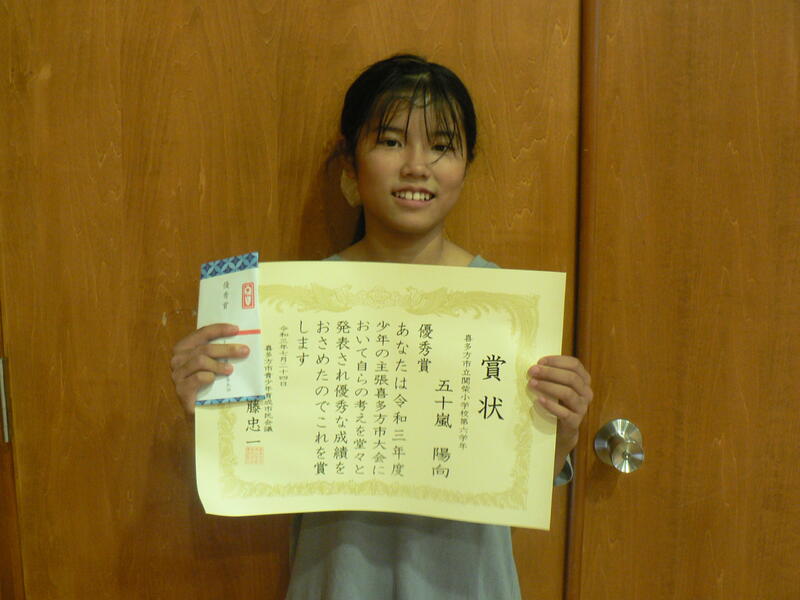 賞状
喜多方市立関柴小学校第六学年
五十嵐 陽向
優秀賞
あなたは令和三年度
少年の主張喜多方市大会に
おいて自らの考えを堂々と
発表され優秀な成績を
おさめたのでこれを賞
します
令和三年七月二十四日
喜多方市青少年育成市民会議
藤忠一
優秀賞